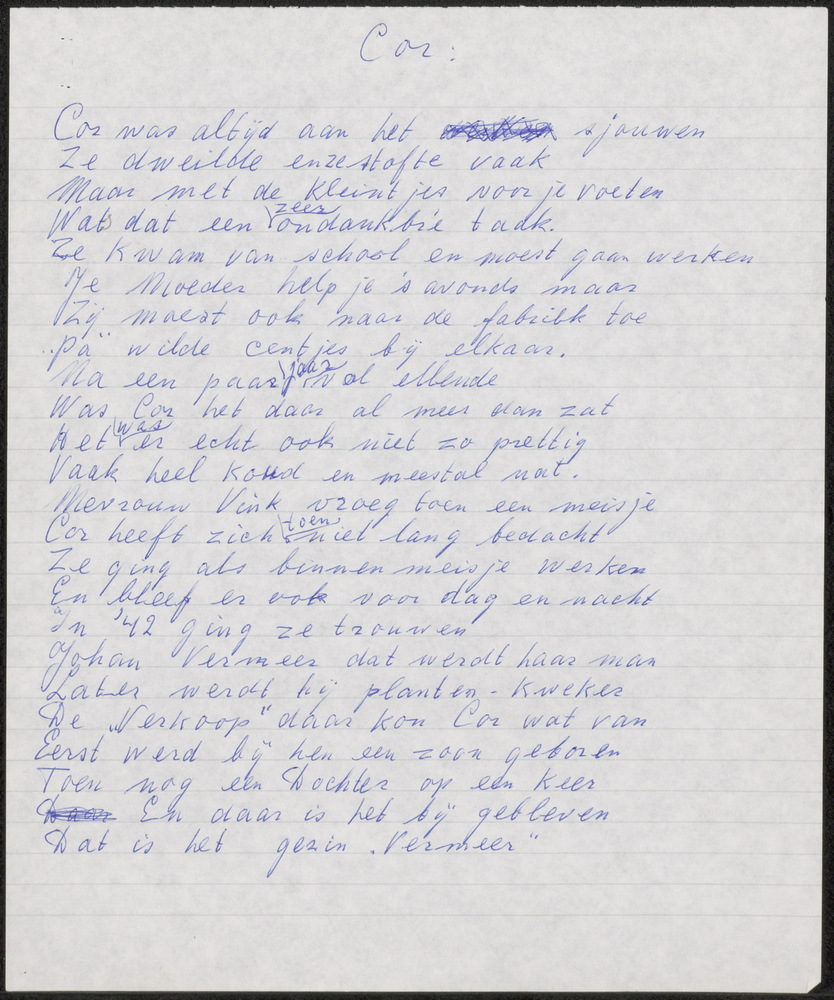 Cor:
Cor was altijd aan het sjouwen
Ze dweilde enzestofte vaak
Maar met de kleintjes voor je voeten
Wat dat een zeer ondankb're taak.
Ze kwam van school en moest gaan werken
Je Moeder help je 's avonds maar
Zij moest ook naar de fabribk toe
"Pa" wilde centjes bij elkaar.
Na een paar jaar vol ellende
Was Cor het daar al meer dan zat
Het was er echt ook niet zo prettig
Vaak heel koud en meestal nat.
Mevrouw Vink vroeg toen een meisje
Cor heeft zich toen niet lang bedacht
Ze ging als binnenmeisje werken
En bleef er ook voor dag en nacht
In '42 ging ze trouwen
Johan Vermeer dat werdt haar man
Later werdt hij planten-kweker
De "Verkoop" daar kon Cor wat van
Eerst werd bij hen een zoon geboren
Toen nog een Dochter op een keer
En daar is het bij gebleven
Dat is het gezin "Vermeer"